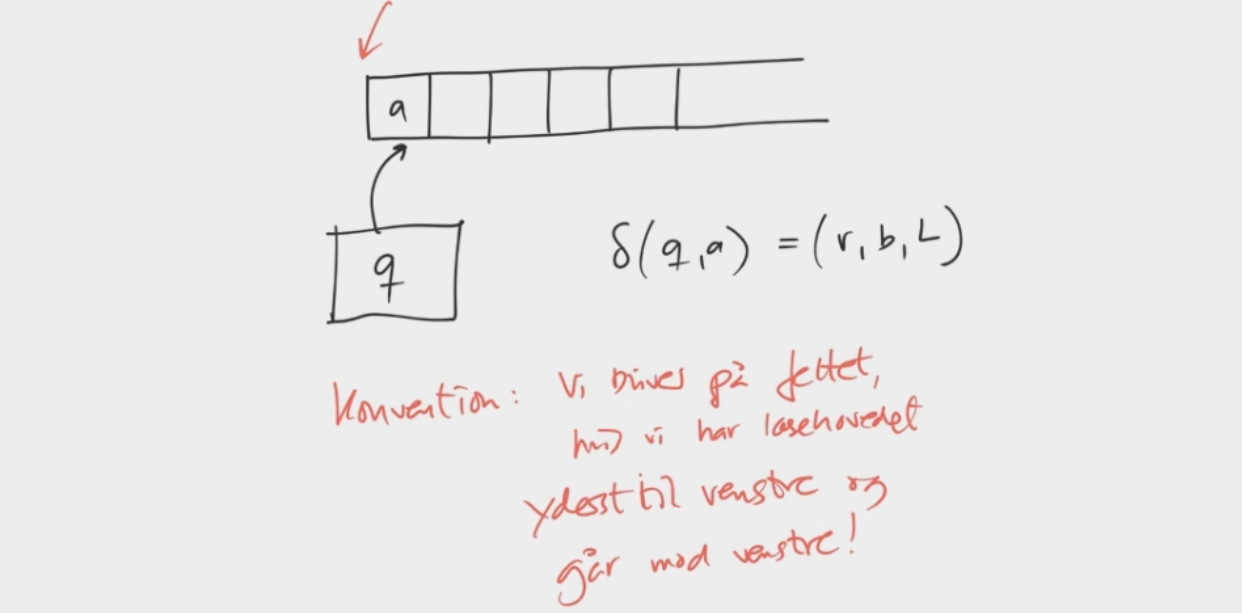 a
q
δ(q,a) = (r, b, L)
Konvention: Vi bliver på feltet,
hvis vi har læsehovedet
yderst til venstre og
går mod venstre!